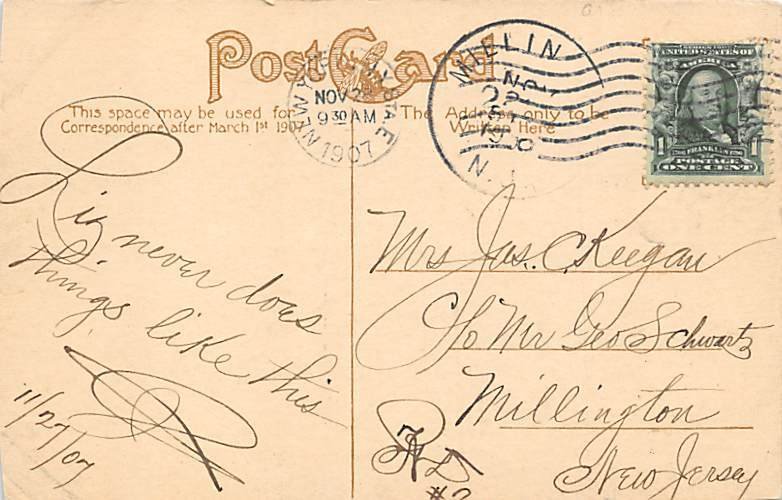 Post Card
This space may be used for
Correspondence after March 1st 1907
The Address only to be
Written Here
NOV
9 30 AM
1907
NOV
SERIES 1902
UNITED STATES OF
AMERICA
1 FRANKLIN 1
POSTAGE
ONE CENT
Liz never does
things like this
11/27/07
Mrs Jas. C. Keegan
C/o Mr Geo Schwartz
Millington
New Jersey
RFD
#2